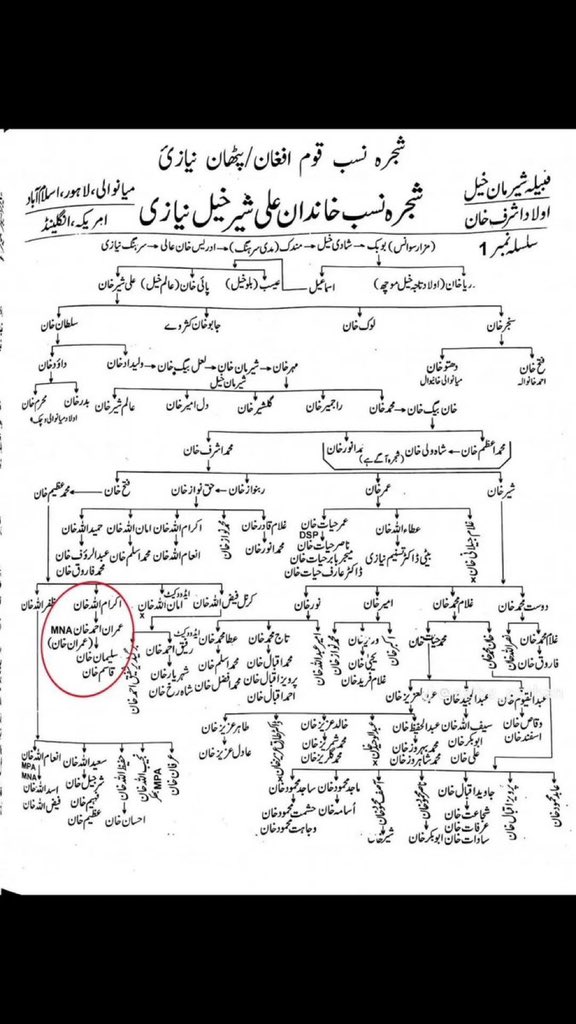 شجرہ نسب قوم افغان/پٹھان نیازی
قبیلہ شیرمان خیل
اولاد اشرف خان
سلسلہ نمبر 1
شجرہ نسب خاندان علی شیر خیل نیازی
میانوالی، لاہور، اسلام آباد
امریکہ، انگلینڈ
(مزار سوانس) بوبک → شادی خیل → مندک (مدی سرہنگ) → ادریس خان عالی → سرہنگ نیازی
ریا خان (اولاد تاجہ خیل موچھ) اسماعیل عیسب (بلو خیل) پائی خان (عالم خیل) علی شیر خان
سنجر خان لوک خان جابو خان کنڑوے سلطان خان
فتح خان دھتو خان مہر خان → شیرمان خان → لعل بیگ خان → ولیداد خان داؤد خان
احمد خانوالہ میانوالی خانیوال شیرمان خیل
خان بیگ خان → محمد خان راجمیر خان گلشیر خان دل امیر خان عالم شیر خان بدر خان محرم خان
اولاد میانوالی
محمد اعظم خان شاہ ولی خان انور خان محمد اشرف خان
(شجرہ آگے ہے)
شیر خان عمر خان ربنواز خان → حق نواز خان فتح خان محمد عظیم خان
غلام جیلانی خان عطاء اللہ خان عمر حیات خان غلام قادر خان محمد نواز خان اکرام اللہ خان امان اللہ خان حمید اللہ خان
بیٹی ڈاکٹر تسنیم نیازی DSP ناصر حیات خان محمد انور خان انعام اللہ خان محمد اسلم خان عبدالرؤف خان
میجر بابر حیات خان محمد فاروق خان
ڈاکٹر عارف حیات خان
دوست محمد خان غلام محمد خان امیر خان نور خان کرنل فیض اللہ خان ایڈووکیٹ امان اللہ خان اکرام اللہ خان ظفر اللہ خان
غلام محمد خان محمد حیات خان اکبر خان محمد نواز خان امیر عبداللہ خان تاج محمد خان عطا محمد خان ایڈووکیٹ رفیق احمد خان عمران احمد خان MNA
فاروق خان غلام فرید خان محمد اقبال خان محمد اسلم خان شہریار خان (عمران خان)
پرویز اقبال خان محمد افضل خان شاہ رخ خان سلیمان خان
احمد اقبال خان قاسم خان
عبدالقیوم خان عبدالمجید خان عبدالعزیز خان
وقاص خان سیف اللہ خان عبدالحفیظ خان خالد عزیز خان طاہر عزیز خان
اسفند خان ابوبکر خان محمد بہروز خان محمد شیر خان عادل عزیز خان
علی خان محمد شاہروز خان محمد گلریز خان
عابد محمود خان پرویز اقبال خان جاوید اقبال خان ناصر محمود خان آصف محمود خان ماجد محمود خان ساجد محمود خان
شجاعت خان اسامہ خان حشمت محمود خان
عرفات خان وجاہت محمود خان
سادات خان ابوبکر خان
عرفان خان نجیب اللہ خان MPA حفیظ اللہ خان سعید اللہ خان انعام اللہ خان MPA MNA
احسان خان شرجیل خان اسد اللہ خان
فہیم خان فیض اللہ خان
عظیم خان